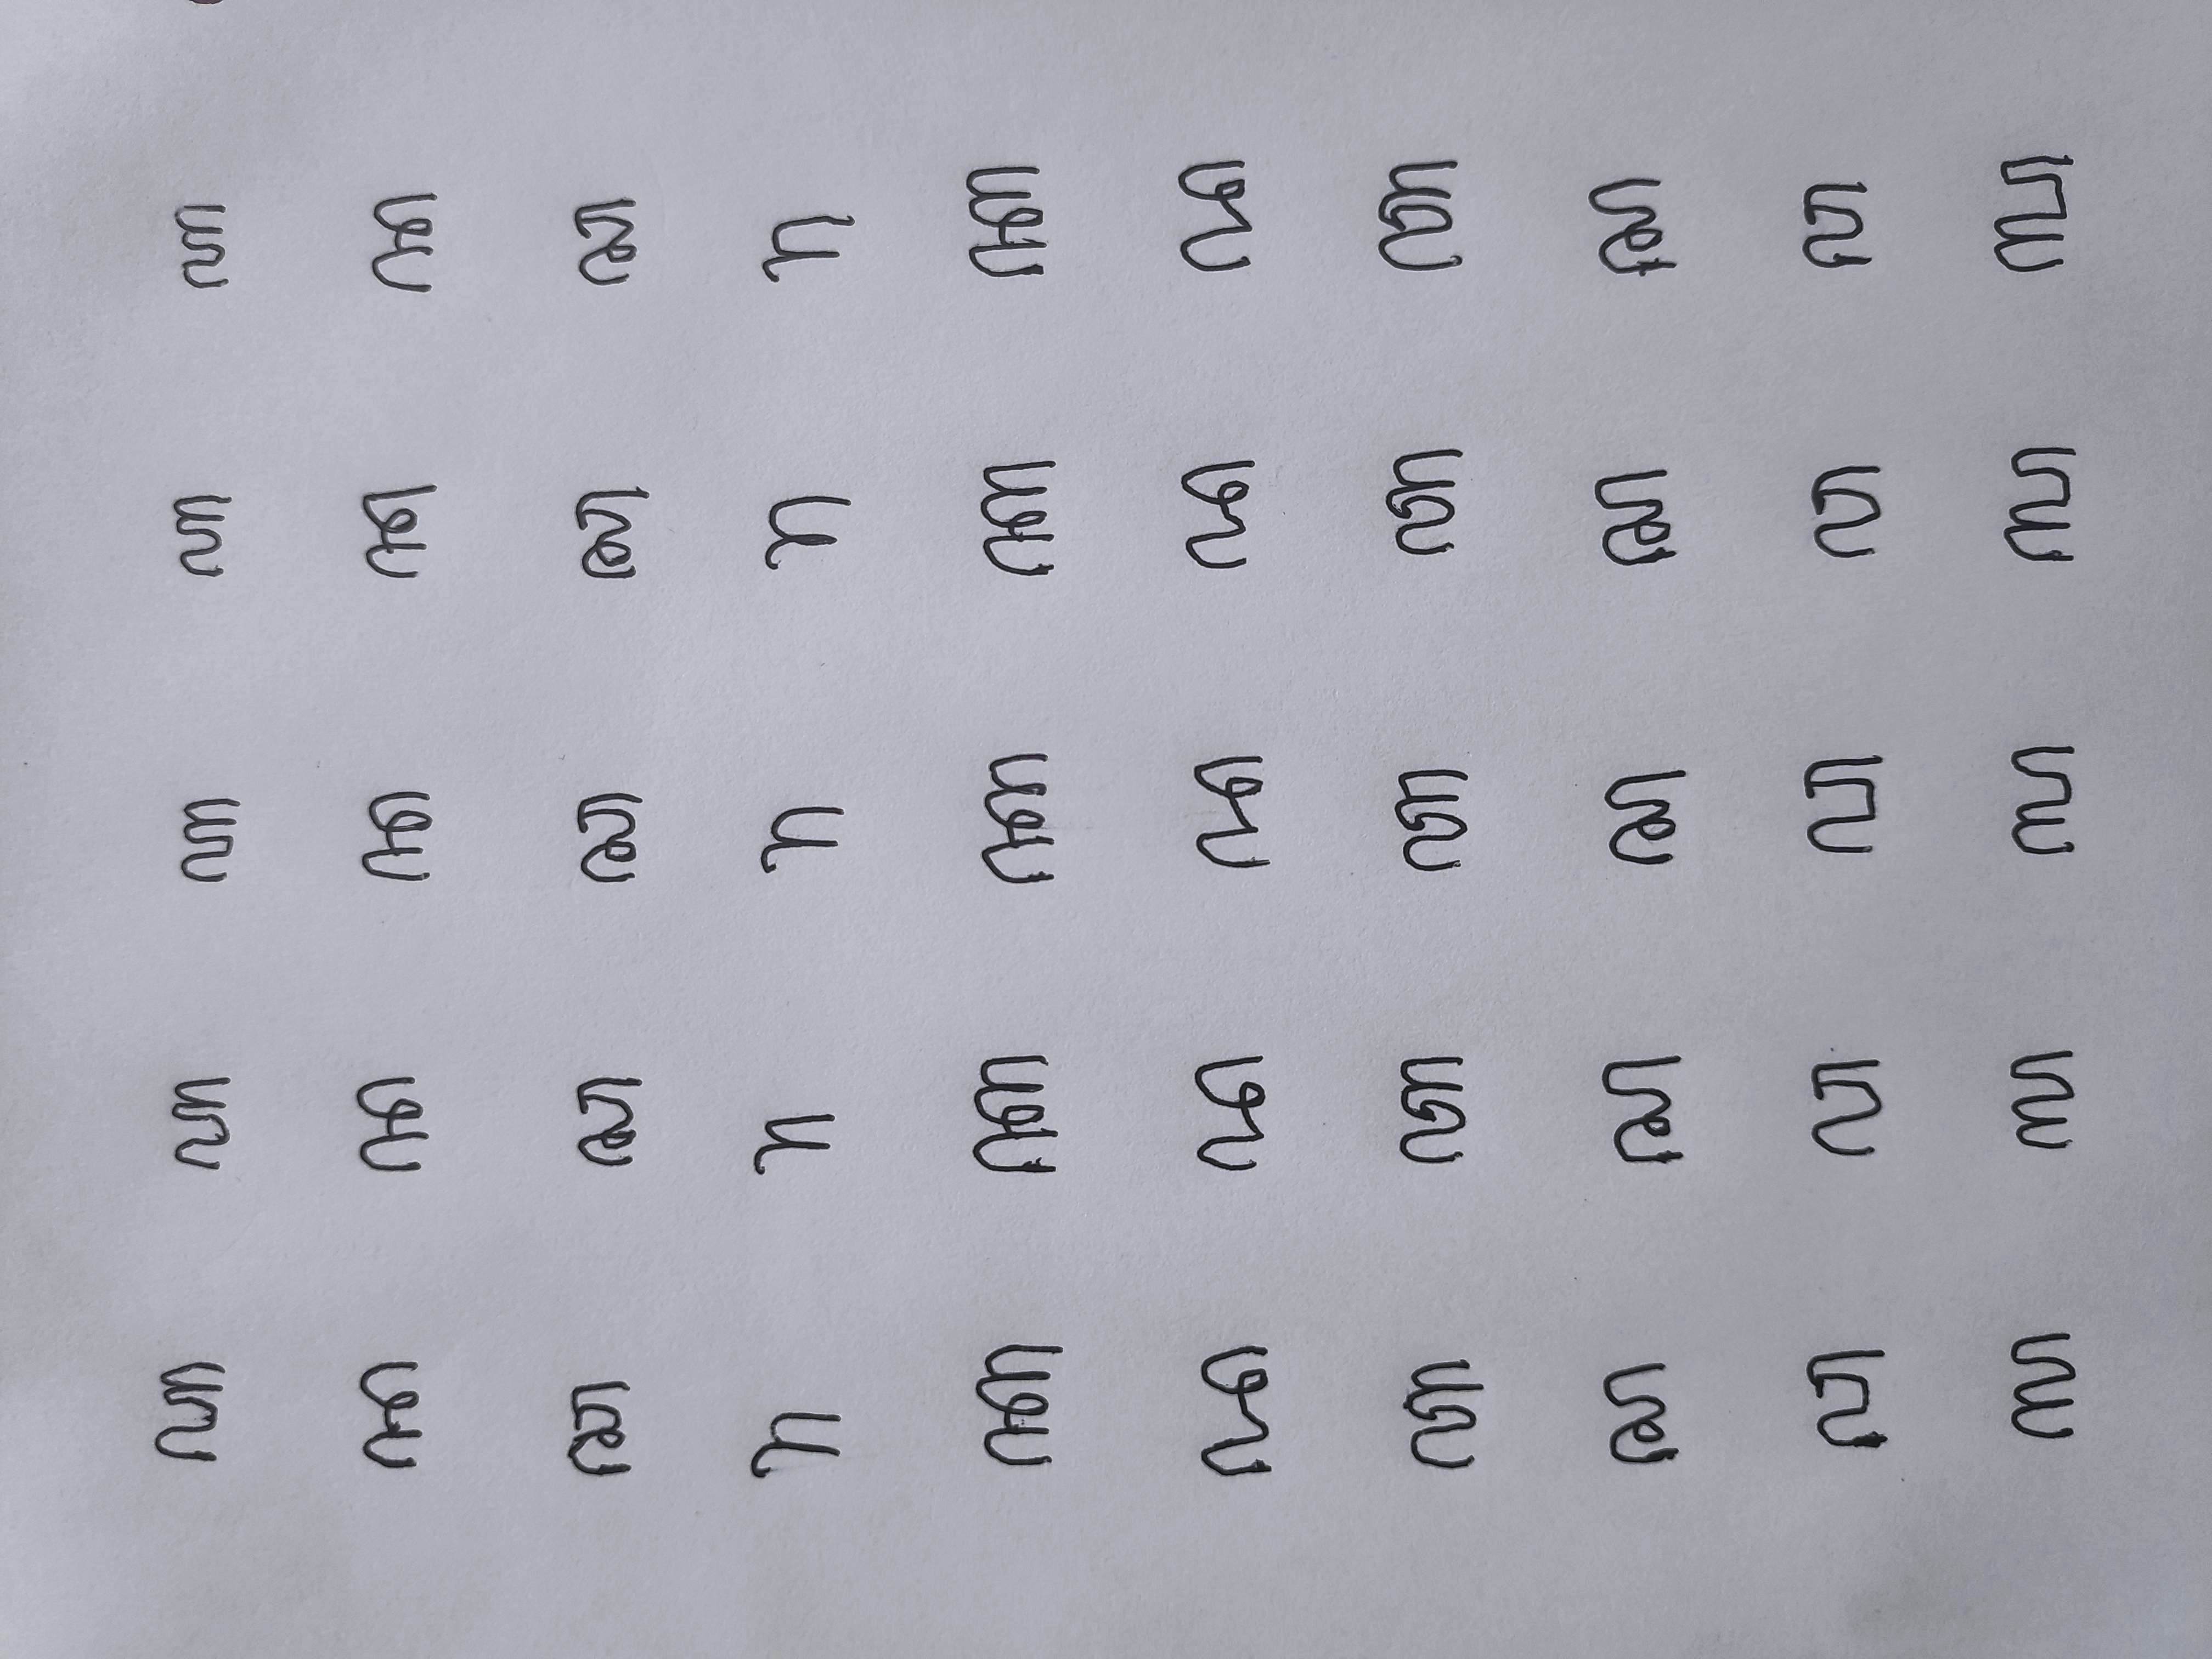 ꦲ ꦲ ꦲ ꦲ ꦲ
ꦤ ꦤ ꦤ ꦤ ꦤ
ꦕ ꦕ ꦕ ꦕ ꦕ
ꦫ ꦫ ꦫ ꦫ ꦫ
ꦏ ꦏ ꦏ ꦏ ꦏ
ꦢ ꦢ ꦢ ꦢ ꦢ
ꦠ ꦠ ꦠ ꦠ ꦠ
ꦱ ꦱ ꦱ ꦱ ꦱ
ꦮ ꦮ ꦮ ꦮ ꦮ
ꦭ ꦭ ꦭ ꦭ ꦭ